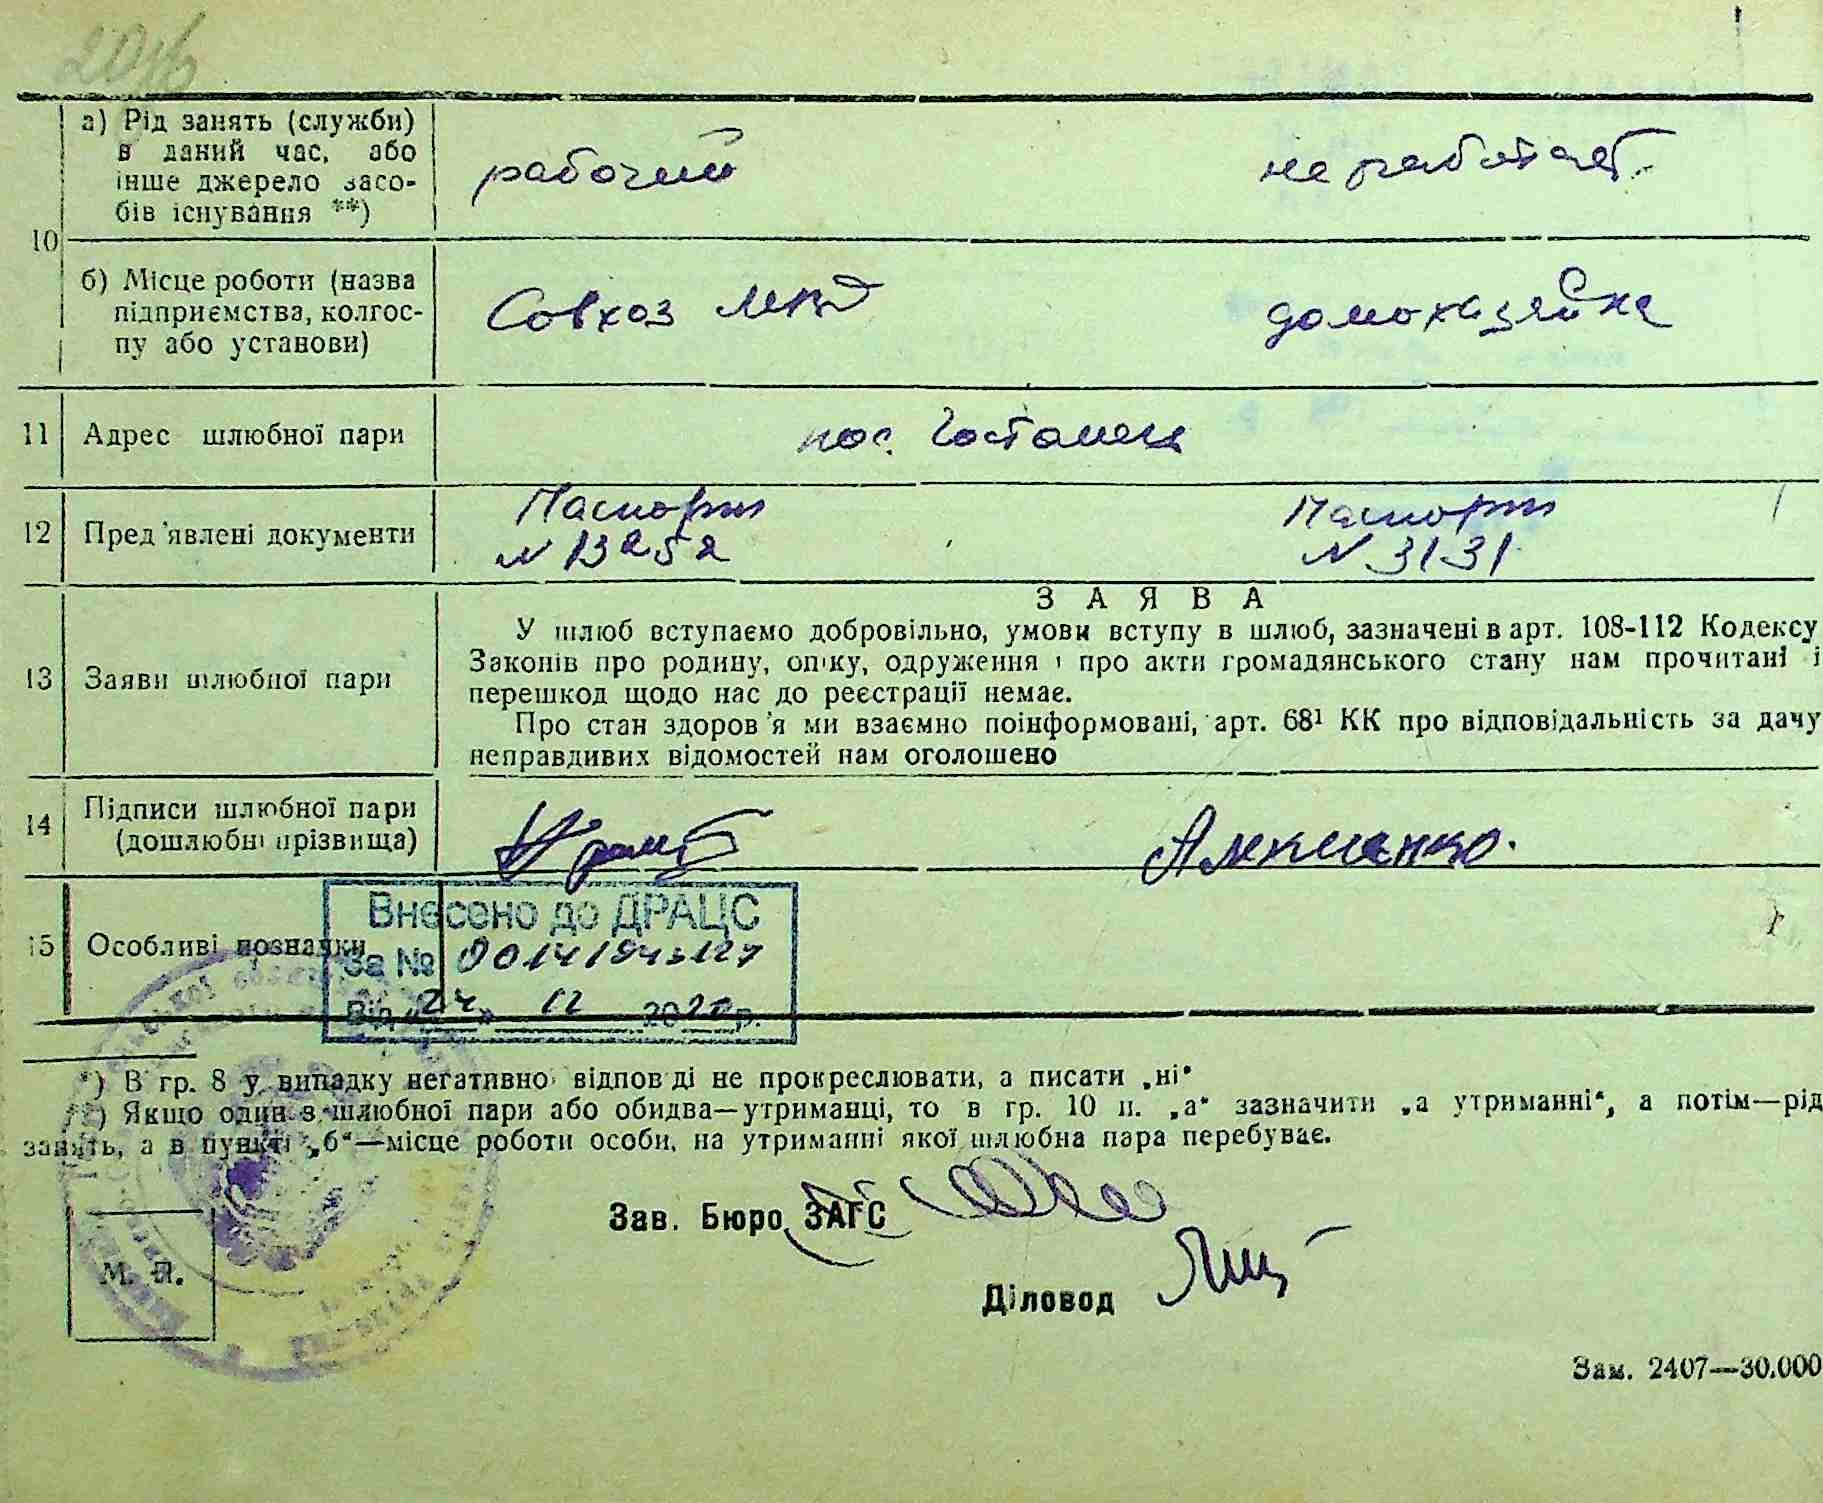 2016
10
а) Рід занять (служби)
в даний час, або
інше джерело засо-
бів існування **)
рабочий
не работает
б) Місце роботи (назва
підприємства, колгос-
пу або установи)
Совхоз МВД
домохазяйка
11 Адрес шлюбної пари
пос.
12 Пред'явлені документи
Паспорт
N 13252
Паспорт
N 3131
13 Заяви шлюбної пари
ЗАЯВА
У шлюб вступаємо добровільно, умови вступу в шлюб, зазначені в арт. 108-112 Кодексу
Законів про родину, опіку, одруження і про акти громадянського стану нам прочитані і
перешкод щодо нас до реєстрації немає.
Про стан здоров'я ми взаємно поінформовані, арт. 68¹ КК про відповідальність за дачу
неправдивих відомостей нам оголошено
14 Підписи шлюбної пари
(дошлюбні прізвища)
15 Особливі познаки
Внесено до ДРАЦС
За № 00141943127
Від «24» 12 2020р.
*) В гр. 8 у випадку негативної відповіді не прокреслювати, а писати „ні“
**) Якщо один з шлюбної пари або обидва—утриманці, то в гр. 10 п. „а“ зазначити „а утриманні“, а потім—рід
занять, а в пункті „б“—місце роботи особи, на утриманні якої шлюбна пара перебуває.
Зав. Бюро ЗАГС
М. П.
Діловод
Зам. 2407—30.000